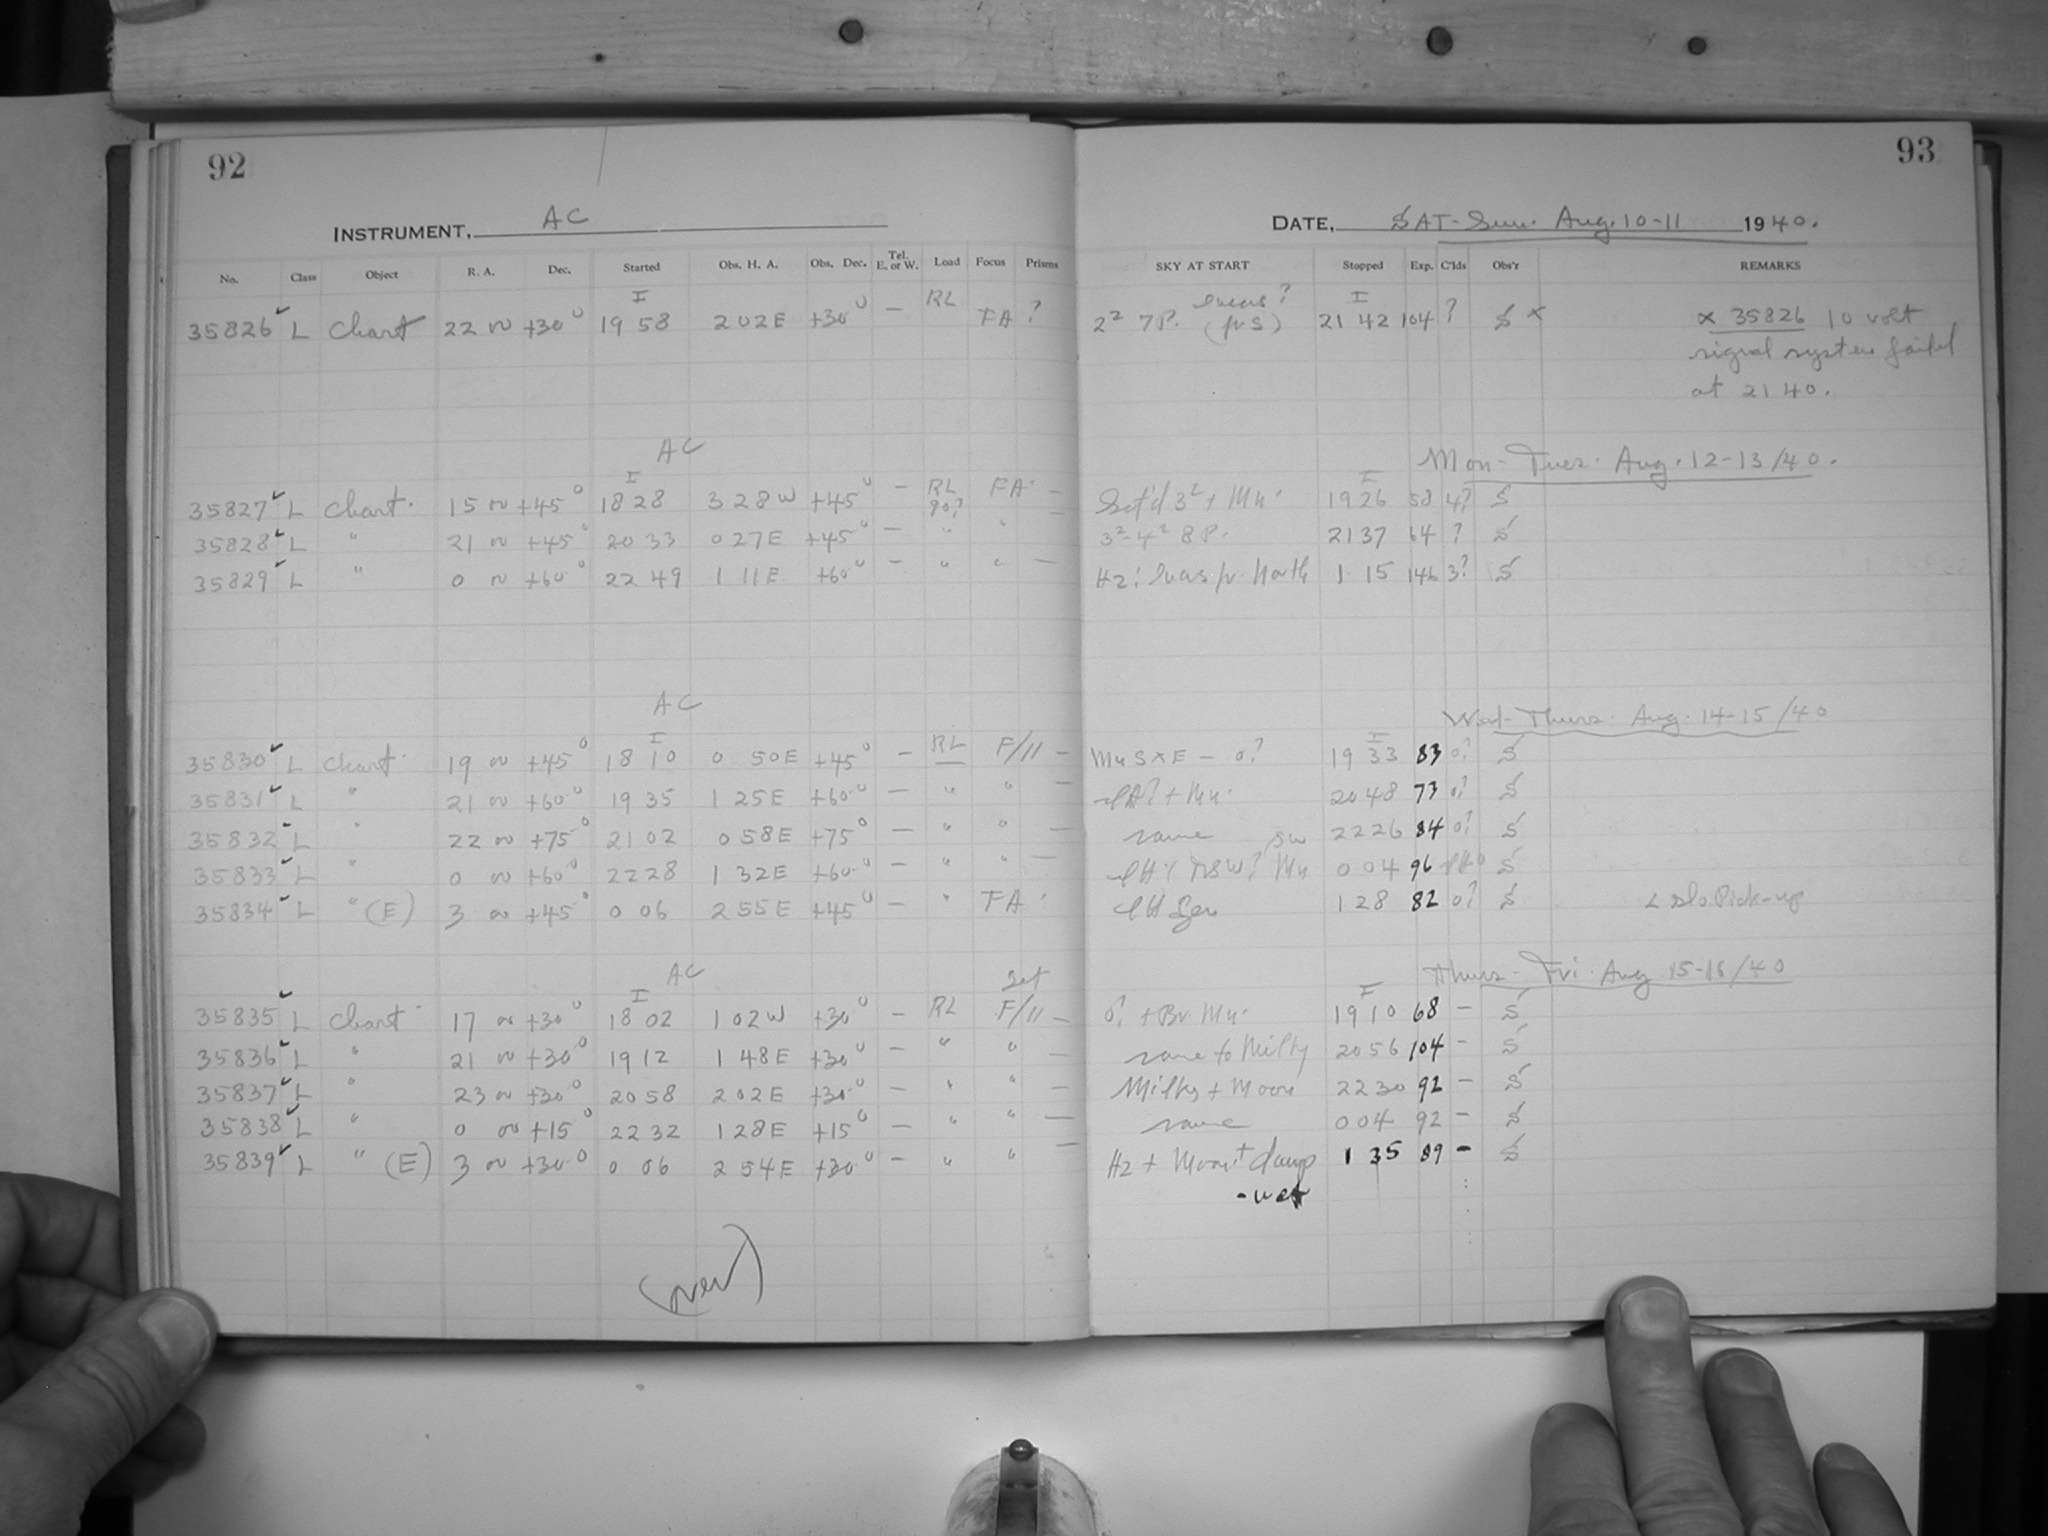 92
INSTRUMENT, AC
No. Class Object R. A. Dec. Started Obs. H. A. Obs. Dec. Tel. E. or W. Load Focus Prisms
35826 L Chart 22 00 +30° 19 58 2 02E +30° — RL FA ?
AC
35827 L Chart. 15 00 +45° 18 28 3 28W +45° — RL 90? FA —
35828 L " 21 00 +45° 20 33 0 27E +45° — " "
35829 L " 0 00 +60° 22 49 1 11E +60° — " " —
AC
35830 L Chart 19 00 +45° 18 10 0 50E +45° — RL F/11 —
35831 L " 21 00 +60° 19 35 1 25E +60° — " " —
35832 L " 22 00 +75° 21 02 0 58E +75° — " " —
35833 L " 0 00 +60° 22 28 1 32E +60° — " " —
35834 L " (E) 3 00 +45° 0 06 2 55E +45° — " FA
AC
35835 L Chart 17 00 +30° 18 02 1 02W +30° — RL Set F/11 —
35836 L " 21 00 +30° 19 12 1 48E +30° — " "
35837 L " 23 00 +30° 20 58 2 02E +30° — " " —
35838 L " 0 00 +15° 22 32 1 28E +15° — " " —
35839 L " (E) 3 00 +30° 0 06 2 54E +30° — " " —
(over)
93
DATE, SAT-Sun. Aug. 10-11 1940.
SKY AT START Stopped Exp. C'lds Obs'r REMARKS
2² 7P. (fr S) 21 42 104 ? S x x 35826 10 volt
signal system failed
at 21 40.
Mon-Tues. Aug. 12-13/40.
3² + Mn. 19 26 58 4? S
3²-4² 8P. 21 37 64 ? S
Hz: North 1 15 146 3? S
Wed-Thurs. Aug. 14-15/40
Mn S x E — 0? 19 33 83 0? S
+ Mn. 20 48 73 0? S
same SW 22 26 84 0? S
Mn 0 04 96 S
1 28 82 0? S Pick-up
Thurs-Fri. Aug. 15-16/40
+ Br. Mn. 19 10 68 — S
same to Milky 20 56 104 — S
Milky + Moon 22 30 92 — S
same 0 04 92 — S
Hz + Moon + damp 1 35 89 — S
-wet